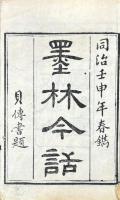 同治壬申年春鐫
墨林今話
貝傳書題